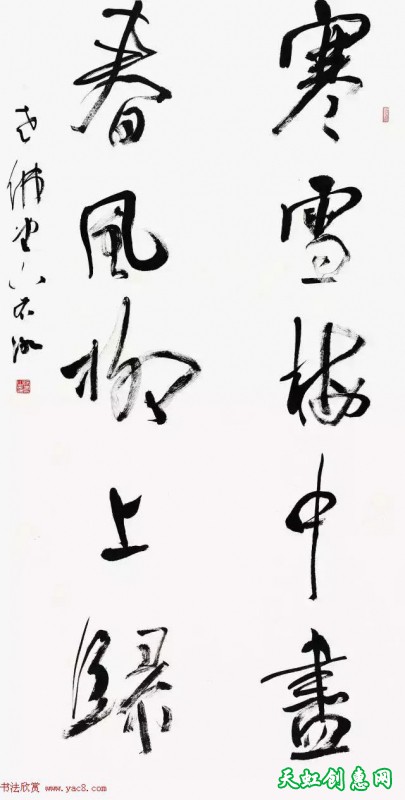 寒雪梅中盡
春風柳上歸
书法欣赏 www.yac8.com
天虹创意网